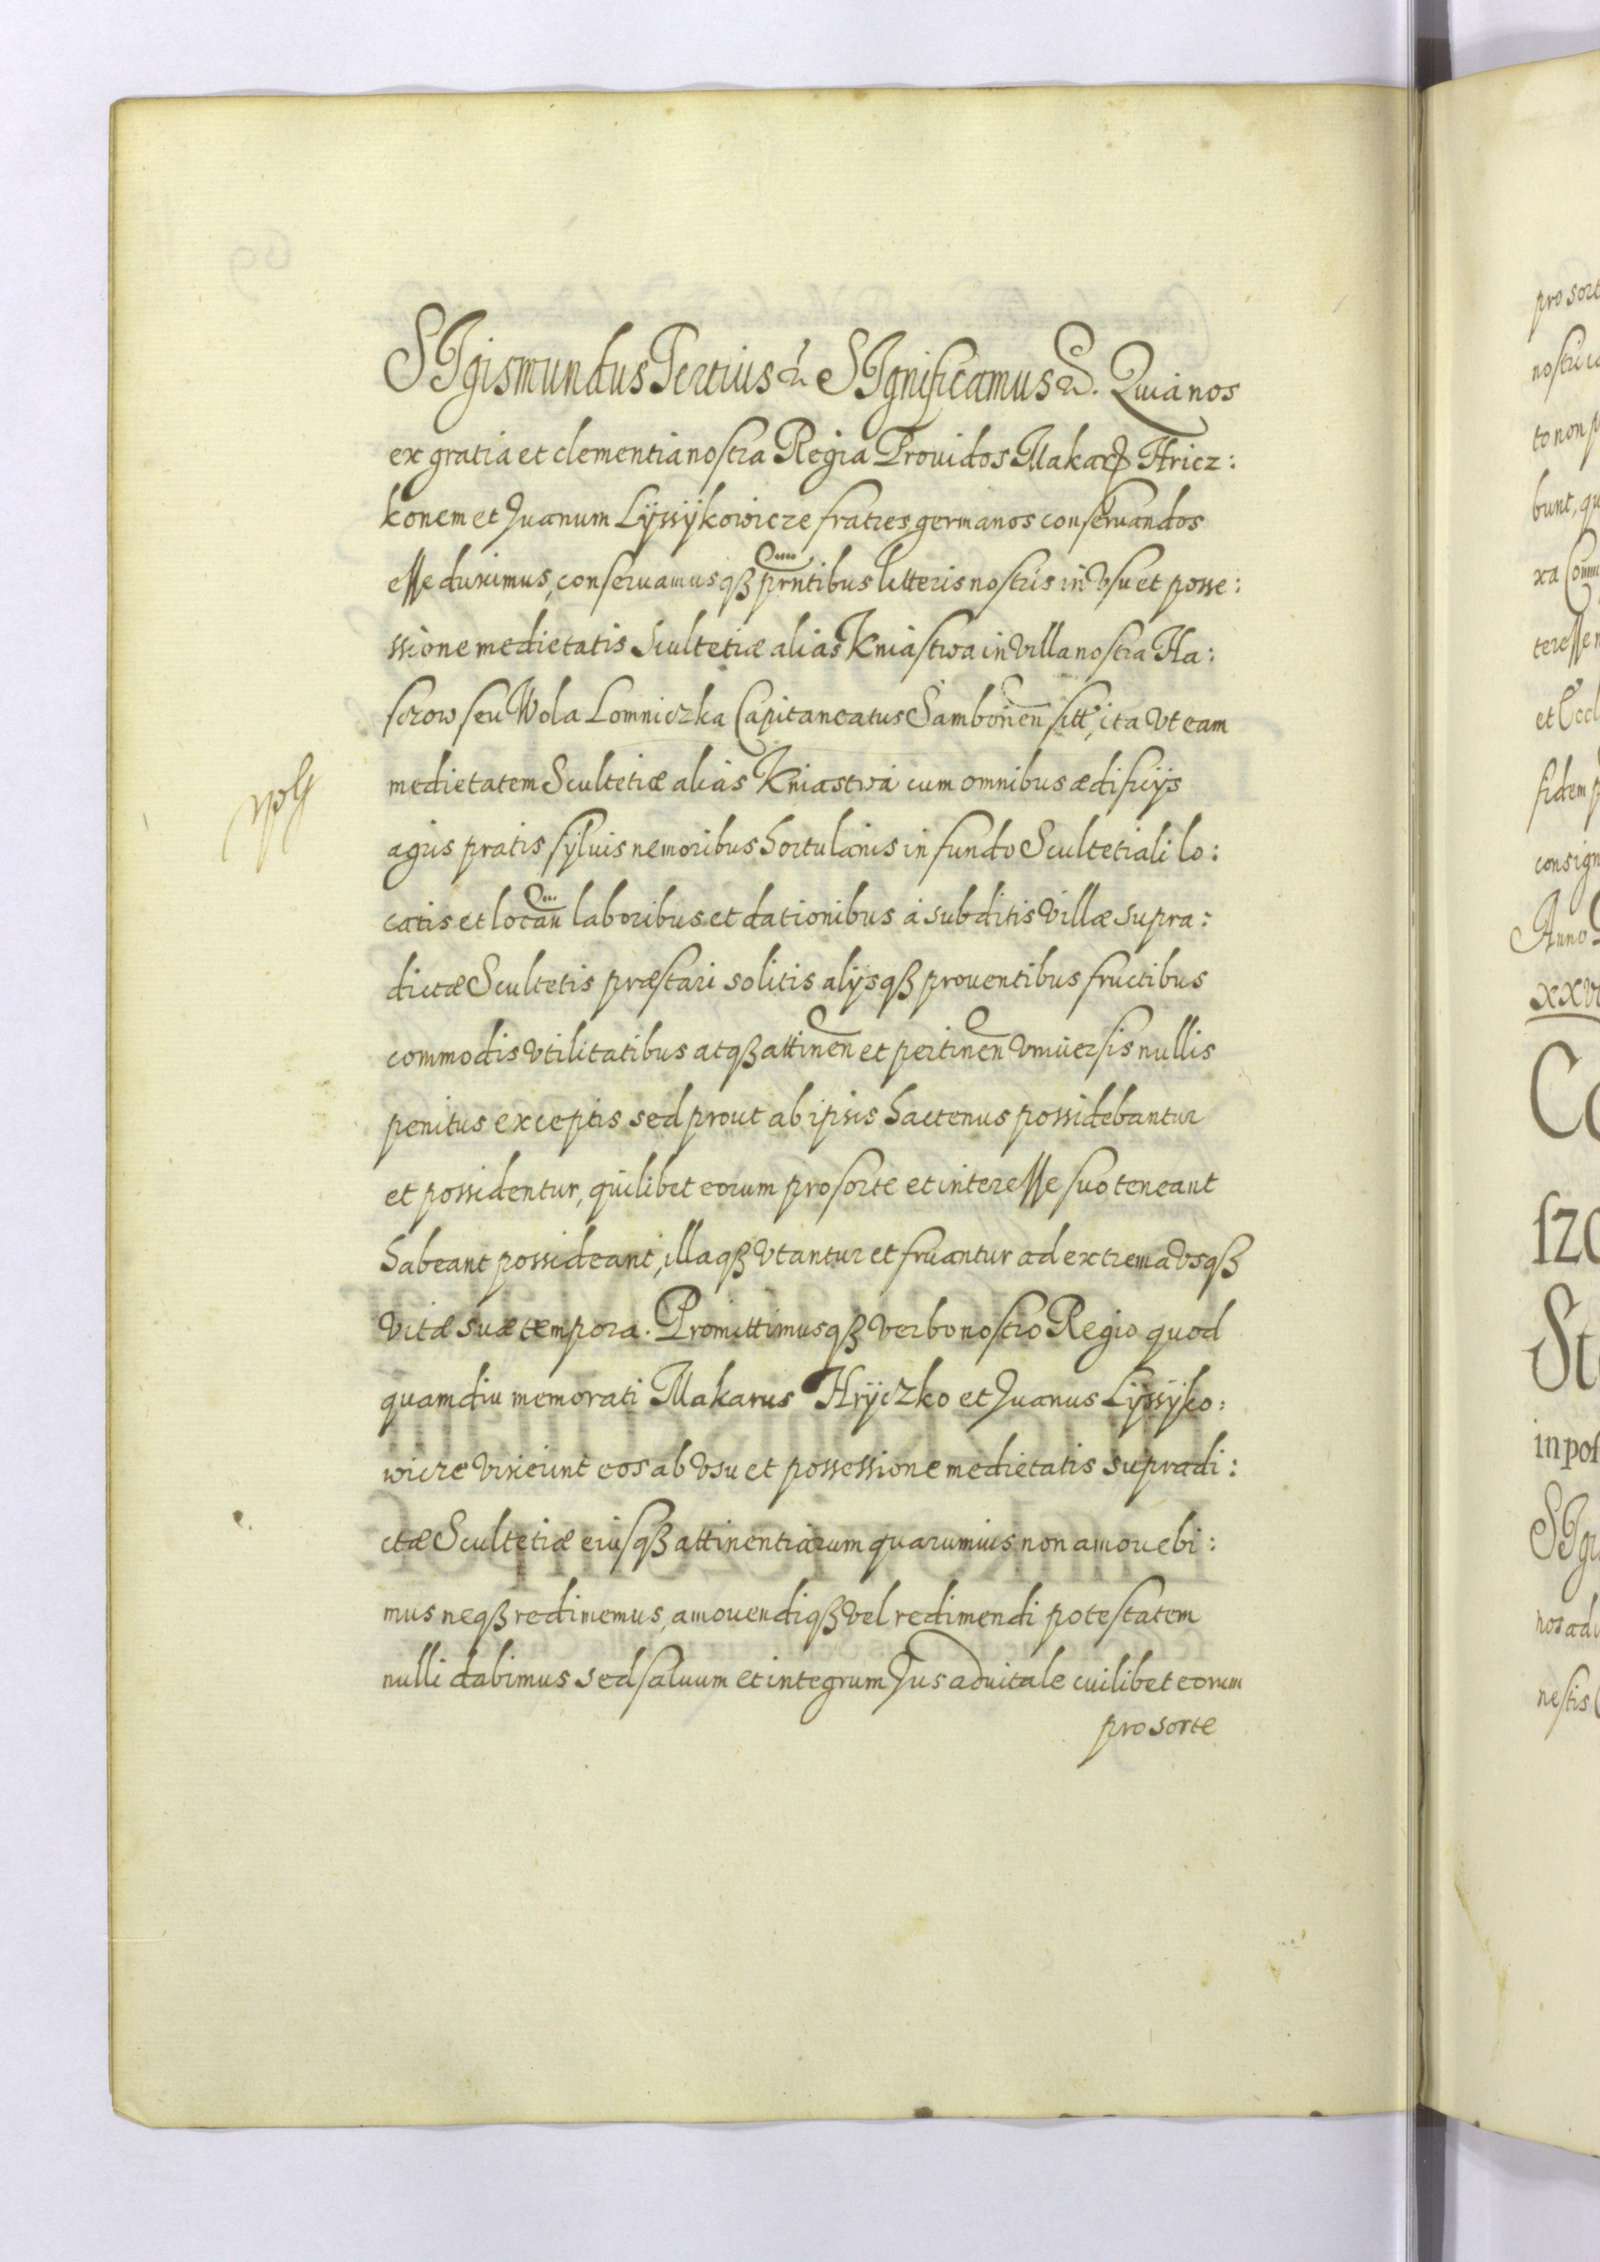 SIgismundus Tertius &c. SIgnificamus &c. Quia nos
ex gratia et clementia nostra Regia Prouidos Makar Hricz:
konem et Iuanum Lÿssÿkowicze fratres germanos conseruandos
esse duximus, conseruamusqȝ prntibus litteris nostris in vsu et posse:
ssione medietatis Scultetiæ alias Kniastwa in villa nostra Ha:
szow seu Wola Lomniczka Capitaneatus Samborien sitt, ita vt eam
medietatem Scultetiæ alias Kniastwa cum omnibus ædificijs
agris pratis sylvis nemoribus hortulanis in fundo Scultetiali lo:
catis et locan laboribus et dationibus à subditis villæ supra:
dictæ Scultetis præstari solitis alijsqȝ prouentibus fructibus
commodis vtilitatibus atqȝ attinen et pertinen vniuersis nullis
penitus exceptis sed prout ab ipsis hactenus possidebantur
et possidentur, quilibet eorum pro sorte et interesse suo teneant
habeant possideant, illaqȝ vtantur et fruantur ad extrema vsqȝ
vitæ suæ tempora. Promittimusqȝ verbo nostro Regio quod
quamdiu memorati Makarus Hrÿczko et Iuanus Lÿssÿko:
wicze vixerint eos ab vsu et possessione medietatis supradi:
ctæ Scultetiæ eiusqȝ attinentiarum quarumuis non amouebi:
mus neqȝ redimemus, amouendiqȝ vel redimendi potestatem
nulli dabimus sed saluum et integrum Ius aduitale cuilibet eorum
pro sorte
pro sort
nostri
to non p
bunt, qu
xa
teresse
et Eccl
fidem p
consign
Anno
xxvi
Co
szo
St
in pos
SIgi
nos ad
nestis